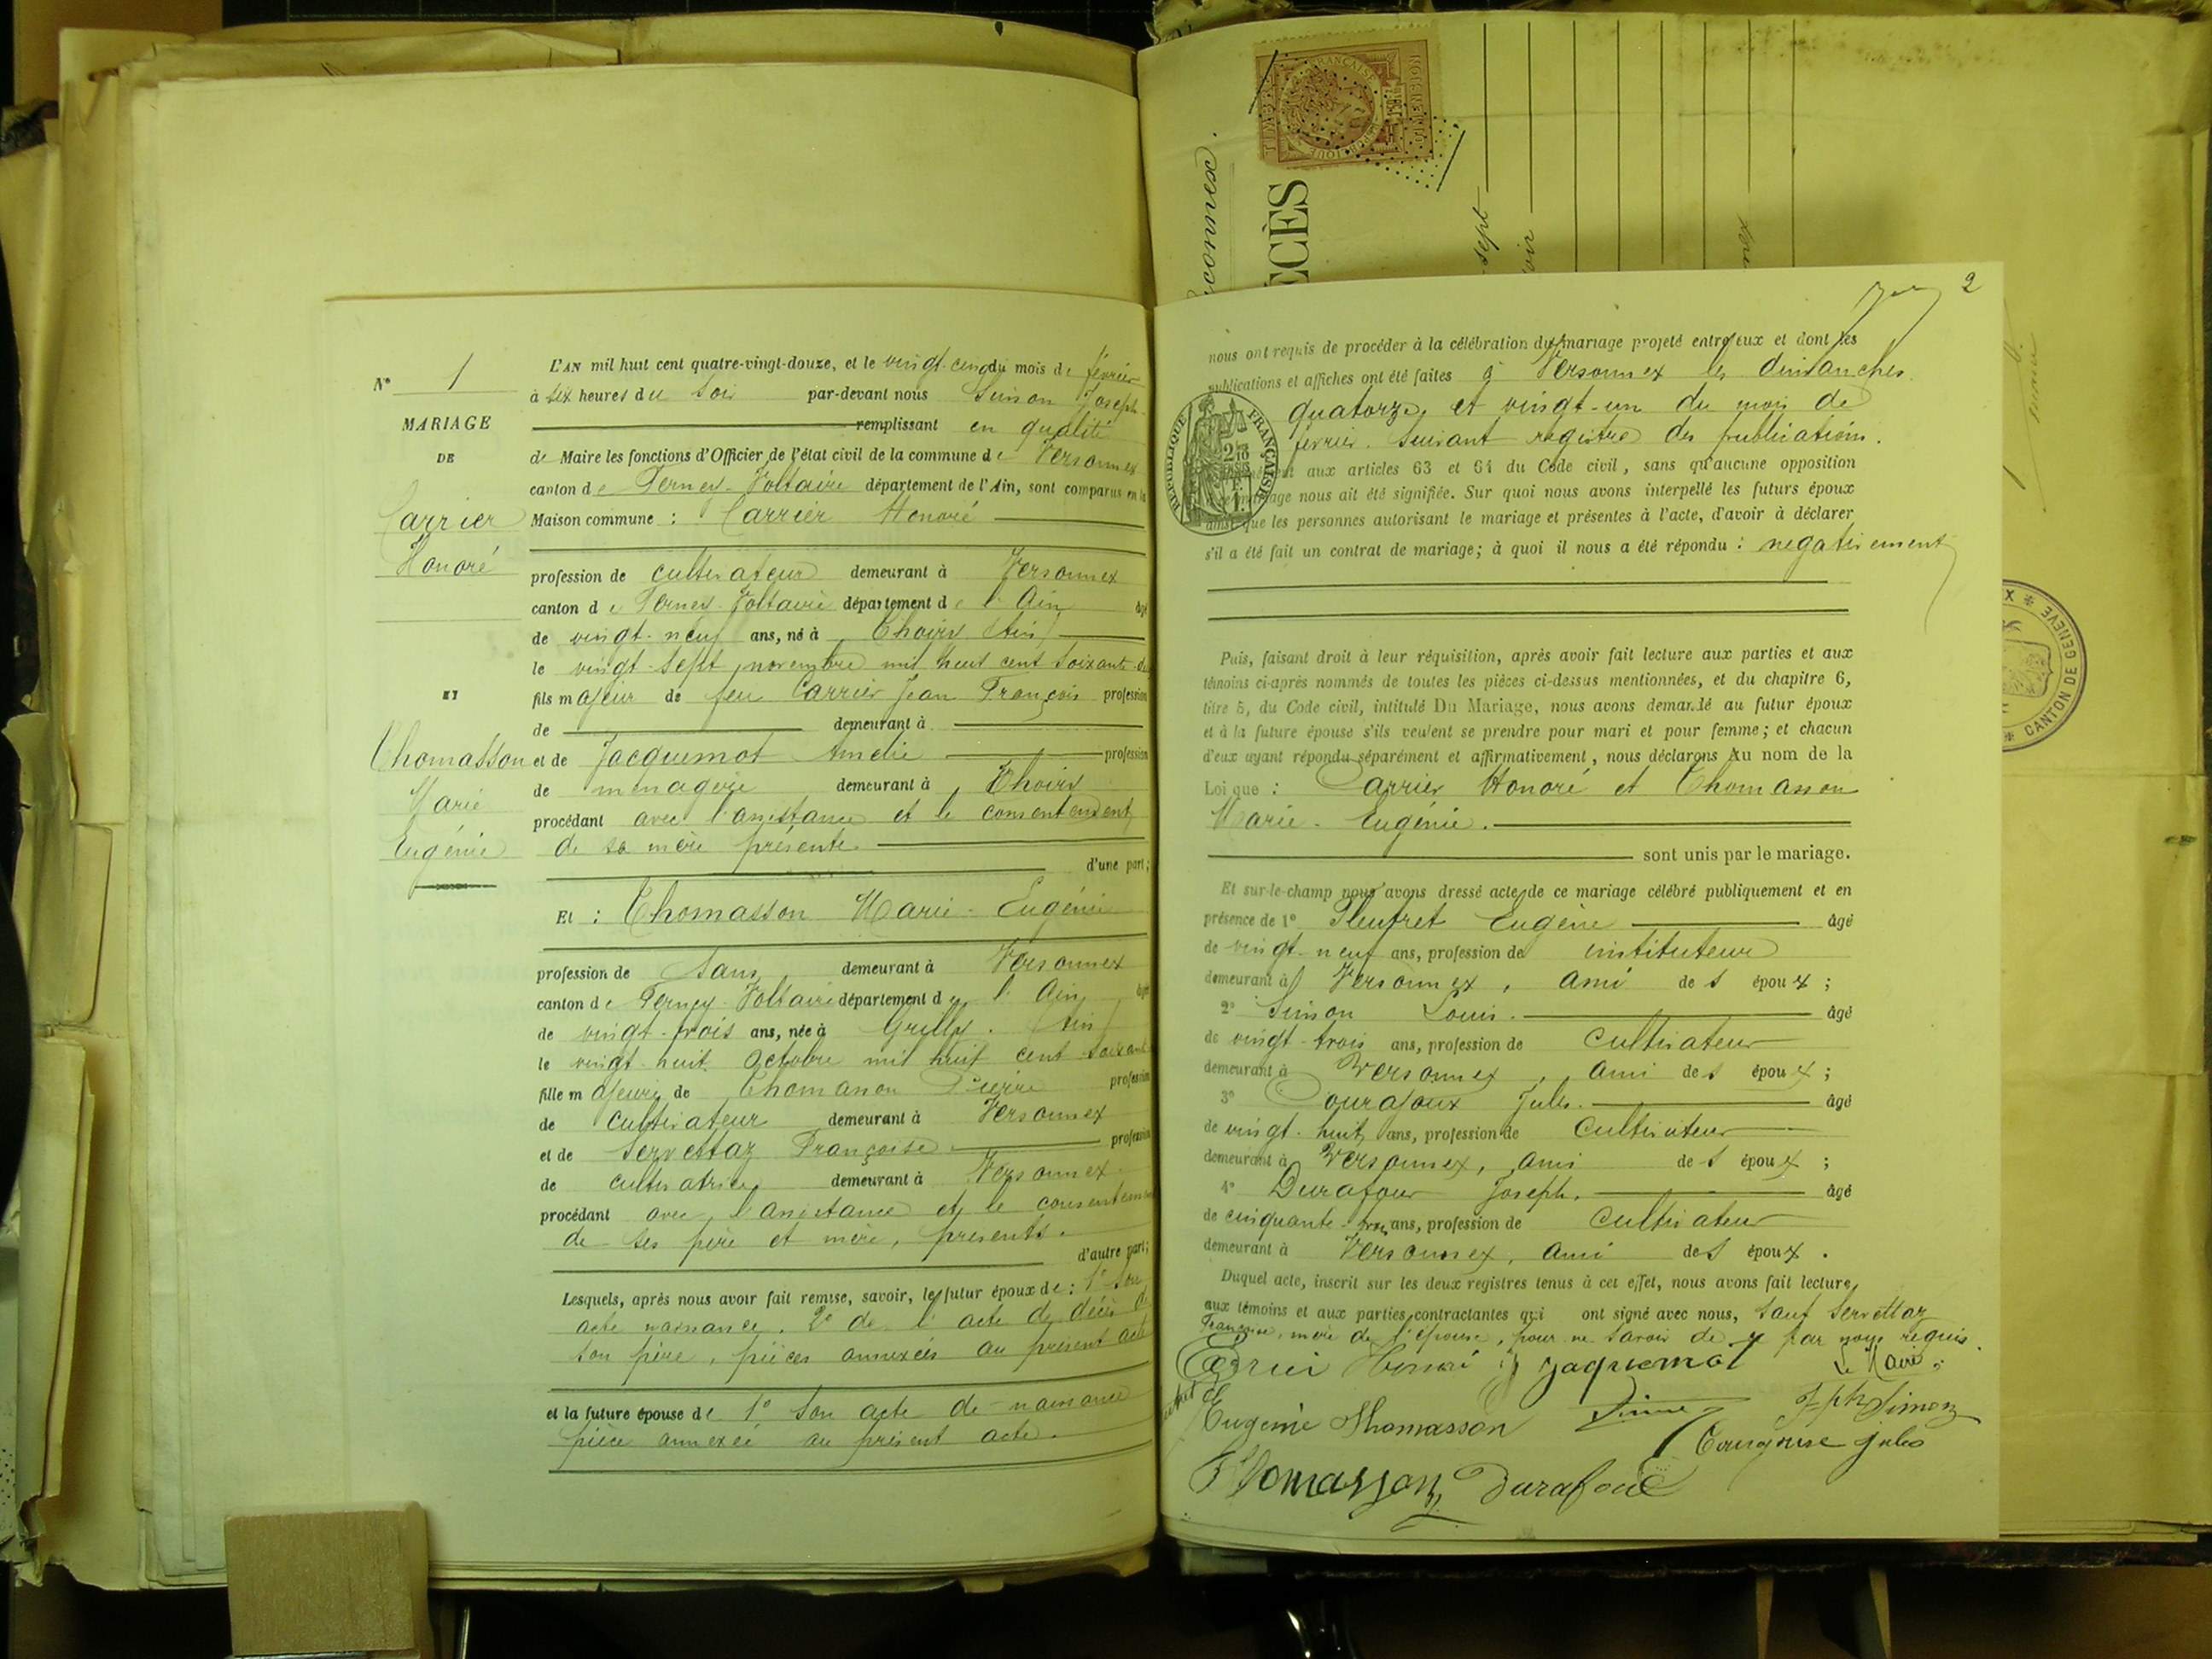 N° 1
MARIAGE
DE
Carrier
Honoré
ET
Thomasson
Marie
Eugénie
L'AN mil huit cent quatre-vingt-douze, et le vingt-cinq du mois de février
à six heures du soir par-devant nous Simon Joseph
remplissant en qualité
de Maire les fonctions d'Officier de l'état civil de la commune de Versonnex
canton de Ferney-Voltaire département de l'Ain, sont comparus en la
Maison commune : Carrier Honoré
profession de cultivateur demeurant à Versonnex
canton de Ferney-Voltaire département de l'Ain âgé
de vingt-neuf ans, né à Thoiry (Ain)
le vingt-sept novembre mil huit cent soixante-deux
fils majeur de feu Carrier Jean François profession
de demeurant à
et de Jacquemot Amélie profession
de ménagère demeurant à Thoiry
procédant avec l'assistance et le consentement
de sa mère présente.
d'une part;
Et : Thomasson Marie-Eugénie
profession de Sans demeurant à Versonnex
canton de Ferney-Voltaire département de l'Ain âgée
de vingt-trois ans, née à Grilly. (Ain)
le vingt-huit octobre mil huit cent soixante
fille majeure de Thomasson Pierre profession
de cultivateur demeurant à Versonnex
et de Servettaz Françoise profession
de cultivatrice demeurant à Versonnex
procédant avec l'assistance et le consentement
de ses père et mère, présents.
d'autre part;
Lesquels, après nous avoir fait remise, savoir, le futur époux de : 1° Son
acte naissance. 2° de l'acte de décès de
son père, pièces annexées au présent acte
et la future épouse de 1° Son acte de naissance
pièce annexée au présent acte.
connex.
ÉCÈS
sept
oir
nex
TIMBRE
RÉPUBLIQUE FRANÇAISE
DIMENSION
2
nous ont requis de procéder à la célébration du mariage projeté entre eux et dont les
publications et affiches ont été faites à Versonnex les dimanches
quatorze, et vingt-un du mois de
février. Suivant registre des publications.
aux articles 63 et 64 du Code civil, sans qu'aucune opposition
mariage nous ait été signifiée. Sur quoi nous avons interpellé les futurs époux
ainsi que les personnes autorisant le mariage et présentes à l'acte, d'avoir à déclarer
s'il a été fait un contrat de mariage; à quoi il nous a été répondu : négativement
RÉPUBLIQUE FRANÇAISE
Puis, faisant droit à leur réquisition, après avoir fait lecture aux parties et aux
témoins ci-après nommés de toutes les pièces ci-dessus mentionnées, et du chapitre 6,
titre 5, du Code civil, intitulé Du Mariage, nous avons demandé au futur époux
et à la future épouse s'ils veulent se prendre pour mari et pour femme; et chacun
d'eux ayant répondu séparément et affirmativement, nous déclarons Au nom de la
Loi que : Carrier Honoré et Thomasson
Marie-Eugénie.
sont unis par le mariage.
Et sur-le-champ nous avons dressé acte de ce mariage célébré publiquement et en
présence de 1° Pleutret Eugène âgé
de vingt-neuf ans, profession de instituteur
demeurant à Versonnex, ami des époux;
2° Simon Louis. âgé
de vingt-trois ans, profession de cultivateur
demeurant à Versonnex, ami des époux;
3° Jules. âgé
de vingt-huit ans, profession de cultivateur
demeurant à Versonnex, ami des époux;
4° Durafour Joseph. âgé
de cinquante-trois ans, profession de cultivateur
demeurant à Versonnex, ami des époux.
Duquel acte, inscrit sur les deux registres tenus à cet effet, nous avons fait lecture
aux témoins et aux parties contractantes qui ont signé avec nous, Sauf Servettaz
Françoise, mère de l'épouse, pour ne savoir de ce par nous requis.
Carrier Honoré Jaquemot Le Maire,
Eugénie Thomasson Jph Simon
Jules
Thomasson Durafour
CANTON DE GENEVE